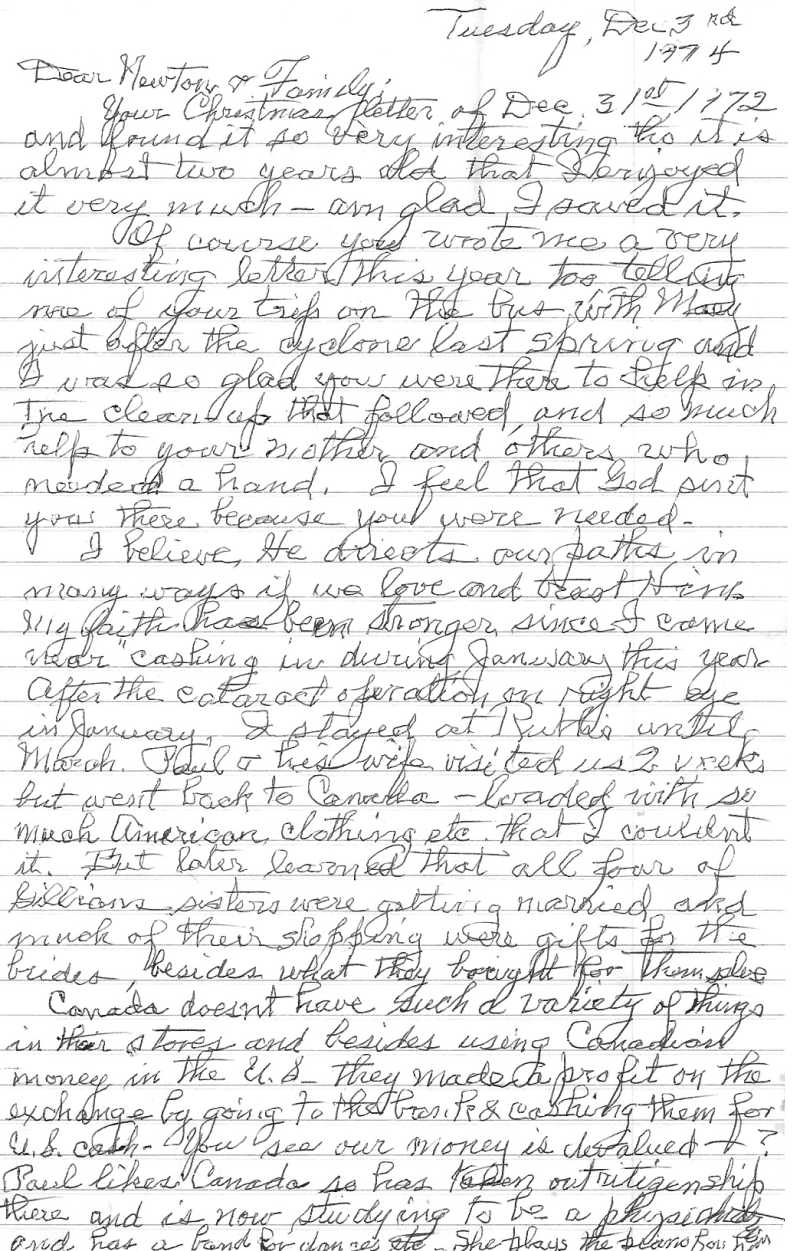 Tuesday, Dec 3rd
1974
Dear Newton & Family;
Your Christmas letter of Dec. 31st 1972
and found it so very interesting tho it is
almost two years old that I enjoyed
it very much – am glad I saved it.
Of course you wrote me a very
interesting letter this year too telling
me of your trip on the bus with
just after the cyclone last spring and
I was so glad you were there to help in
the clean up that followed, and so much
help to your mother and others who
needed a hand. I feel that God sent
you there because you were needed.
I believe He directs our paths in
many ways if we love and trust Him.
My faith has been stronger since I came
near "cashing in during January this year
After the cataract operation on right eye
in January. I stayed at Ruth's until
March. Paul & his wife visited us 2 weeks
but went back to Canada – loaded with so
much American clothing etc. that I couldn't
it. But later learned that all four of
Gillians sisters were getting married and
much of their shopping were gifts for the
brides, besides what they bought for themselve
Canada doesn't have such a variety of things
in their stores and besides using Canadian
money in the U.S – they made a profit on the
exchange by going to the bank & cashing them for
U.S. cash – You see our money is devalued – ?
Paul likes Canada so has taken out citizenship
there and is now studying to be a
and has a band for dances etc – She plays the piano for